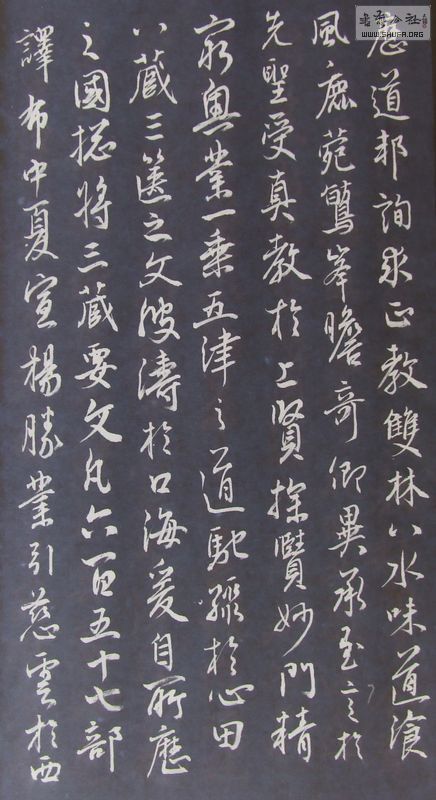 歷道邦詢求正教雙林八水味道飡
風鹿苑鷲峯瞻奇仰異承至言於
先聖受真教於上賢探賾妙門精
窮奧業一乘五律之道馳驟於心田
八藏三篋之文波濤於口海爰自所歷
之國揔將三藏要文凡六百五十七部
譯布中夏宣揚勝業引慈雲於西
書法公社
WWW.SHUFA.ORG